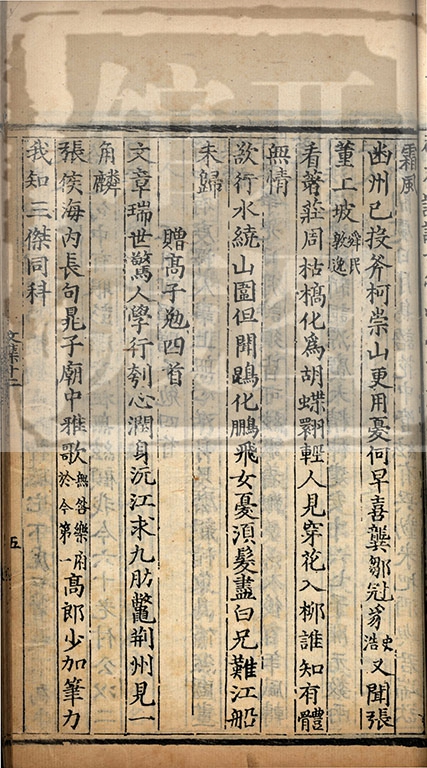 霜風
幽州已投斧柯崇山更用憂何早喜龔鄒冠豸浩史又聞張
董上坡舜民敦逸
看著莊周枯槁化爲胡蝶翾輕人見穿花入柳誰知有體
無情
欲行水繞山圍但聞鵾化鵬飛女憂須髮盡白兄難江船
未歸
贈髙子勉四首
文章瑞世驚人學行刳心潤身沅江求九肋鼈荆州見一
角麟
張侯海內長句晁子廟中雅歌無咎樂府於今第一髙郎少加筆力
我知三傑同科
文集十二
五